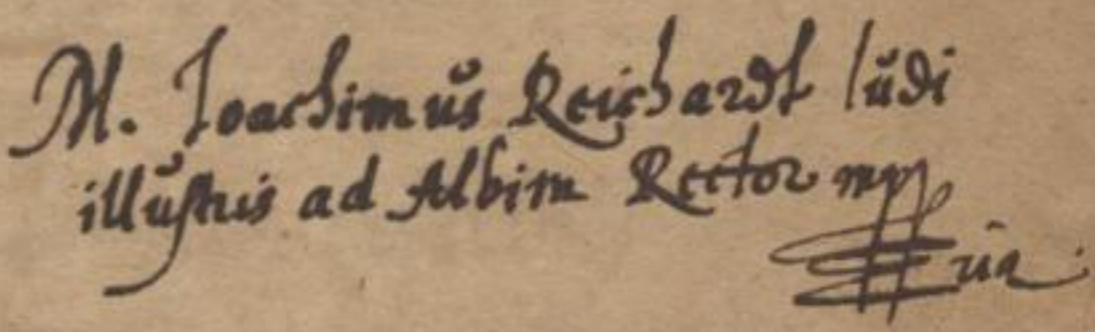 M. Joachimus Reichardt ludi
illustris ad Albim Rector mpp
ria